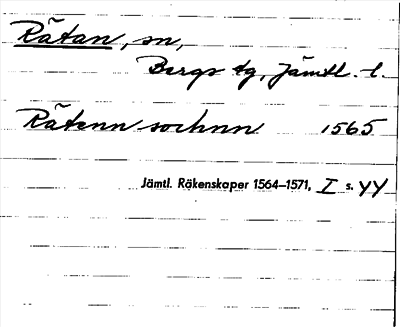 Rätan, sn,
Bergs tg, Jämtl. l.
Rätenn sochnn 1565
Jämtl. Räkenskaper 1564–1571, I s. YY